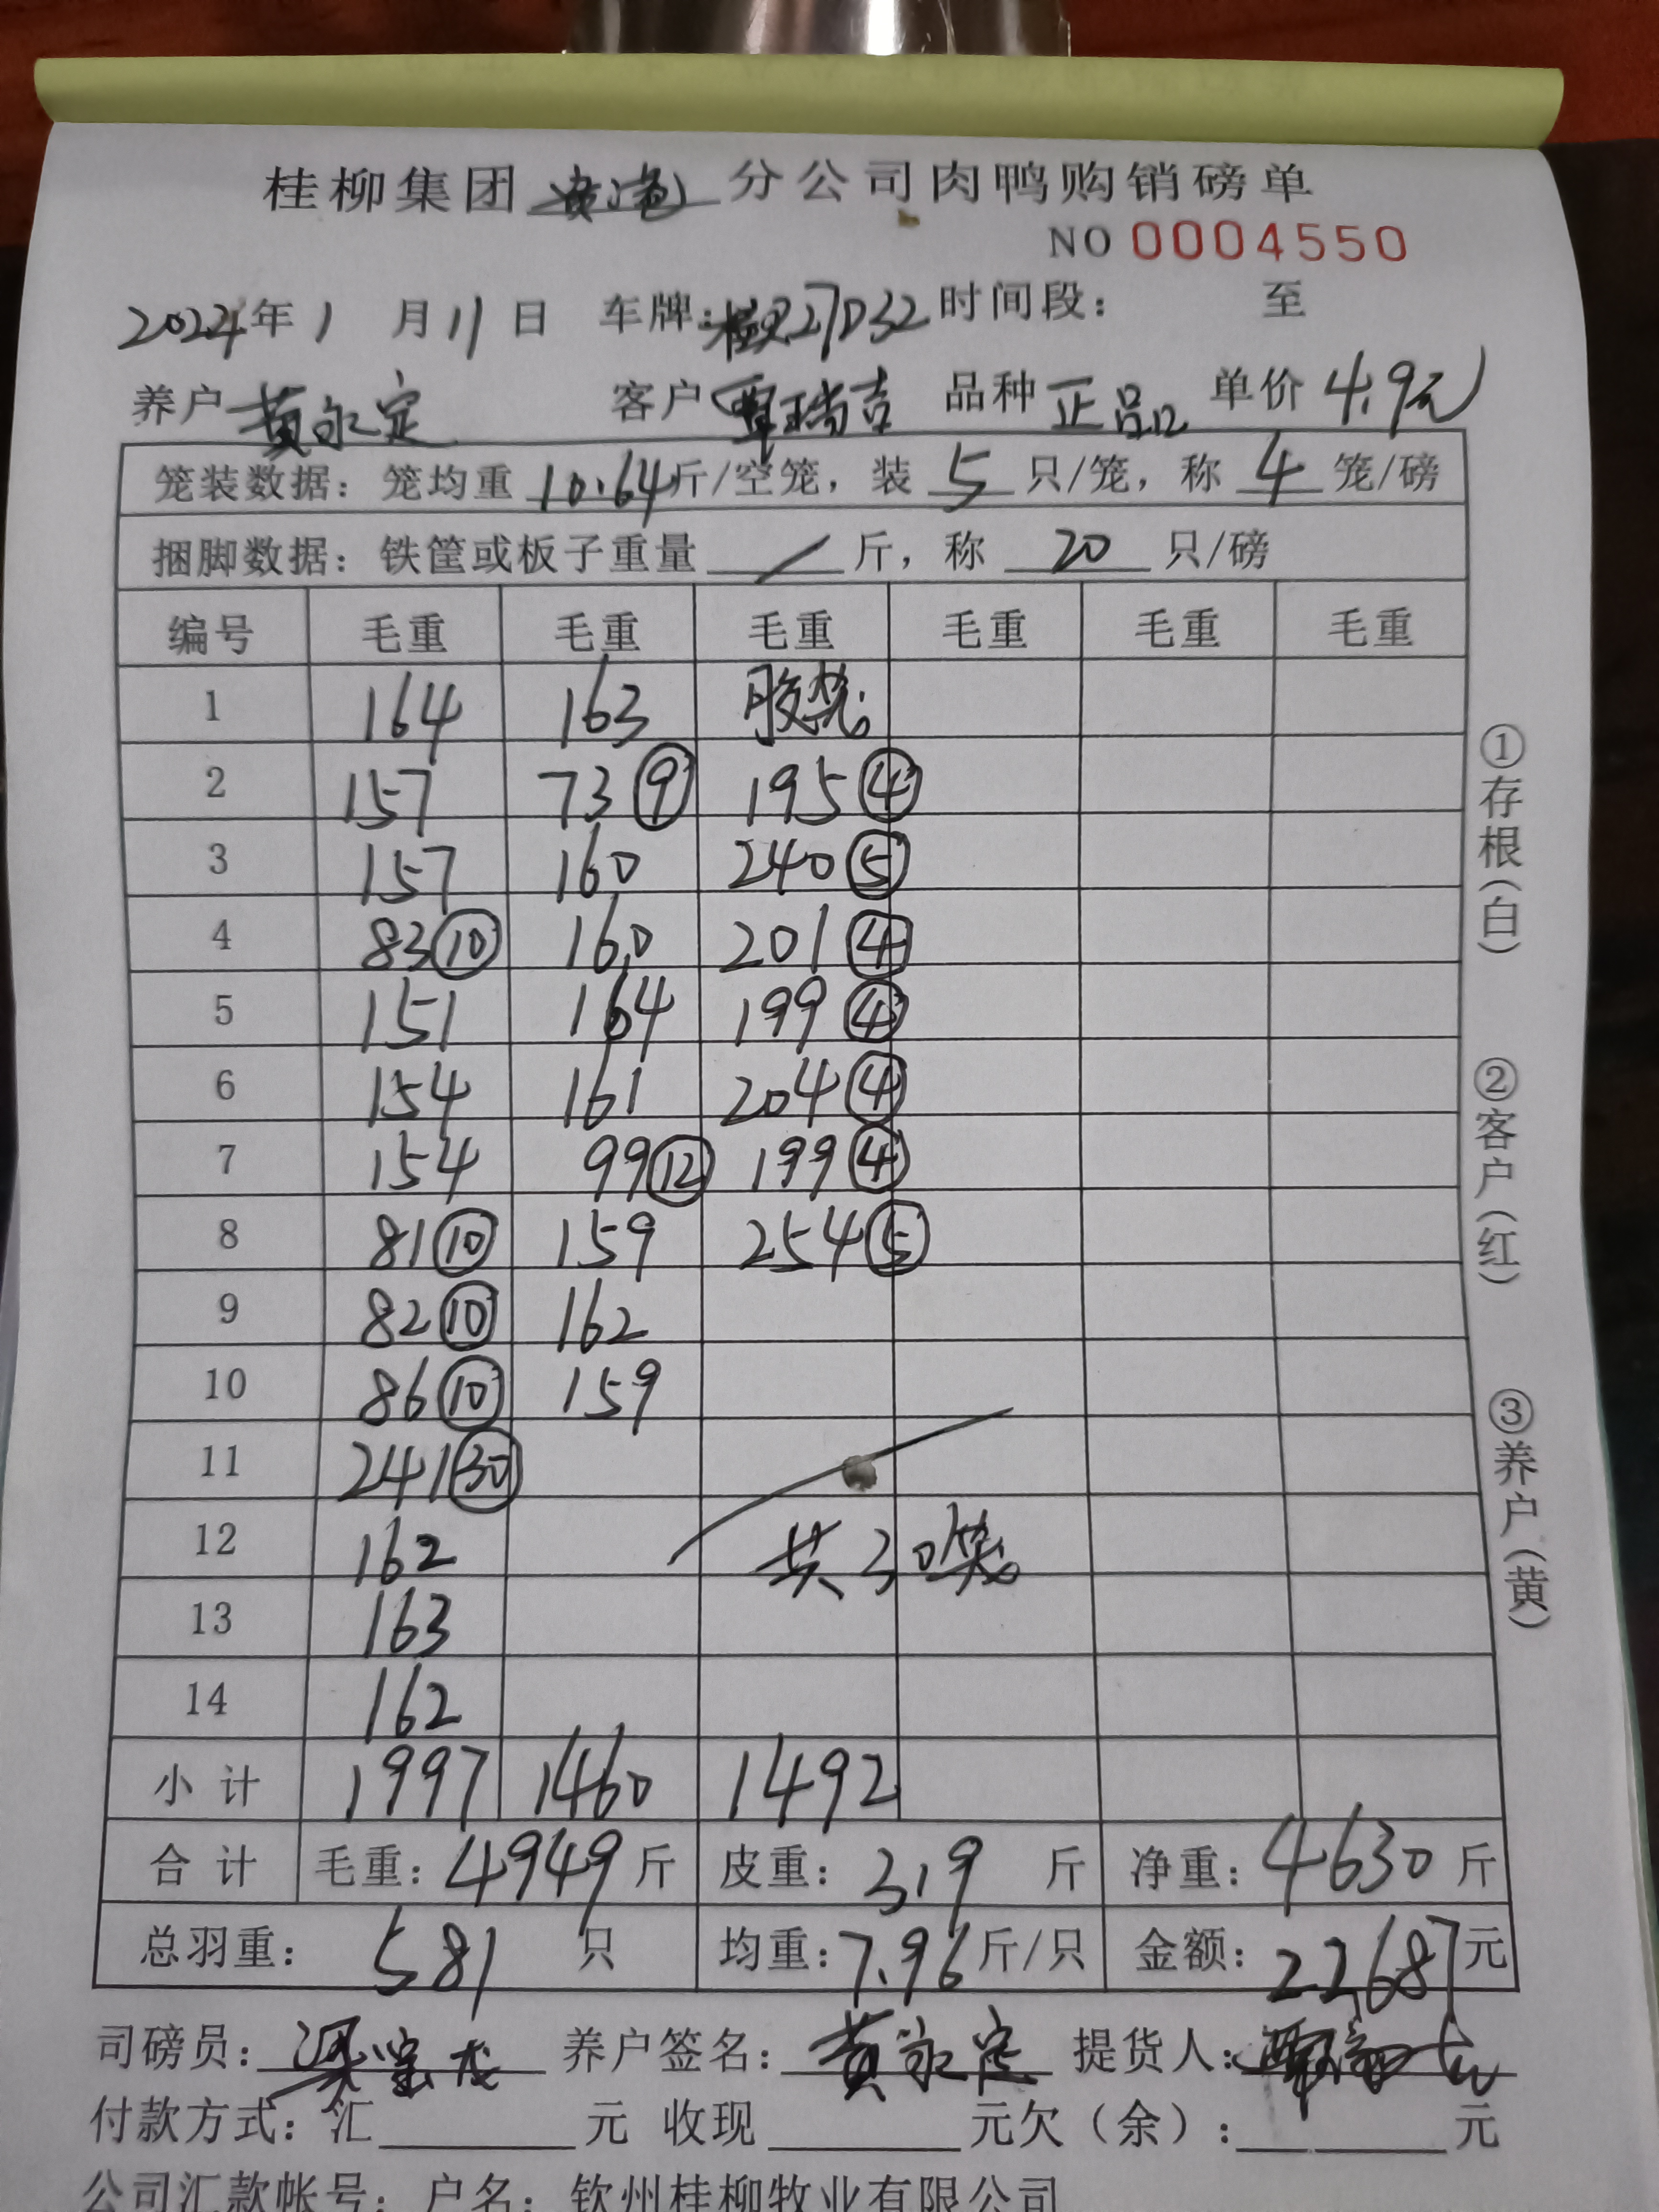 桂柳集团 分公司肉鸭购销磅单
NO 0004550
2024年1月11日 车牌:桂R27D32 时间段: 至
养户 黄永定 客户 覃瑞吉 品种 正品 单价 4.9元
笼装数据: 笼均重 10.64 斤/空笼, 装 5 只/笼, 称 4 笼/磅
捆脚数据: 铁筐或板子重量 / 斤, 称 20 只/磅
编号 毛重 毛重 毛重 毛重 毛重 毛重
1 164 163 胶笼
2 157 73⑨ 195④
3 157 160 240⑤
4 83⑩ 160 201④
5 151 164 199④
6 154 161 204④
7 154 99⑫ 199④
8 81⑩ 159 254⑤
9 82⑩ 162
10 86⑩ 159
11 241㉚
12 162 共30笼
13 163
14 162
小计 1997 1460 1492
合计 毛重: 4949 斤 皮重: 319 斤 净重: 4630 斤
总羽重: 581 只 均重: 7.96 斤/只 金额: 22687 元
司磅员: 养户签名: 黄永定 提货人: 覃瑞吉
付款方式: 汇 元 收现 元欠(余): 元
公司汇款帐号: 户名: 钦州桂柳牧业有限公司
①存根(白)
②客户(红)
③养户(黄)